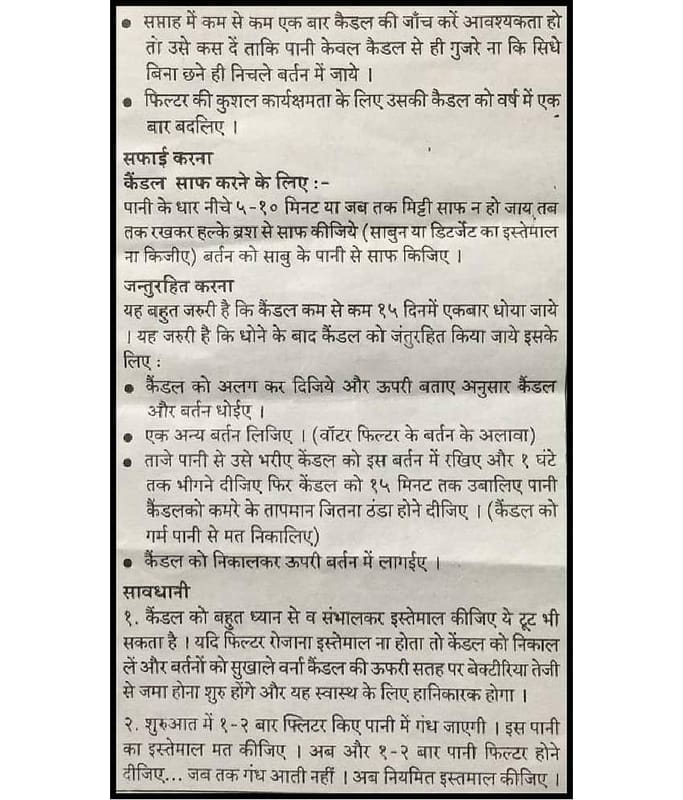 • सप्ताह में कम से कम एक बार कैडल की जाँच करें आवश्यकता हो
तो उसे कस दें ताकि पानी केवल कैडल से ही गुजरे ना कि सिधे
बिना छने ही निचले बर्तन में जाये ।
• फिल्टर की कुशल कार्यक्षमता के लिए उसकी कैडल को वर्ष में एक
बार बदलिए ।
सफाई करना
कैंडल साफ करने के लिए :-
पानी के धार नीचे ५-१० मिनट या जब तक मिट्टी साफ न हो जाय तब
तक रखकर हल्के ब्रश से साफ कीजिये (साबुन या डिटर्जेंट का इस्तेमाल
ना किजीए) बर्तन को साबु के पानी से साफ किजिए ।
जन्तुरहित करना
यह बहुत जरुरी है कि कैंडल कम से कम १५ दिनमें एकबार धोया जाये
। यह जरुरी है कि धोने के बाद कैंडल को जंतुरहित किया जाये इसके
लिए :
• कैंडल को अलग कर दिजिये और ऊपरी बताए अनुसार कैंडल
और बर्तन धोईए ।
• एक अन्य बर्तन लिजिए । (वॉटर फिल्टर के बर्तन के अलावा)
• ताजे पानी से उसे भरीए केंडल को इस बर्तन में रखिए और १ घंटे
तक भीगने दीजिए फिर केंडल को १५ मिनट तक उबालिए पानी
कैंडलको कमरे के तापमान जितना ठंडा होने दीजिए । (कैंडल को
गर्म पानी से मत निकालिए)
• कैंडल को निकालकर ऊपरी बर्तन में लागईए ।
सावधानी
१. कैंडल को बहुत ध्यान से व संभालकर इस्तेमाल कीजिए ये टूट भी
सकता है । यदि फिल्टर रोजाना इस्तेमाल ना होता तो केंडल को निकाल
लें और बर्तनों को सुखाले वर्ना कैंडल की ऊफरी सतह पर बेक्टीरिया तेजी
से जमा होना शुरु होंगे और यह स्वास्थ के लिए हानिकारक होगा ।
२. शुरुआत में १-२ बार फ्लिटर किए पानी में गंध जाएगी । इस पानी
का इस्तेमाल मत कीजिए । अब और १-२ बार पानी फिल्टर होने
दीजिए... जब तक गंध आती नहीं । अब नियमित इस्तमाल कीजिए ।